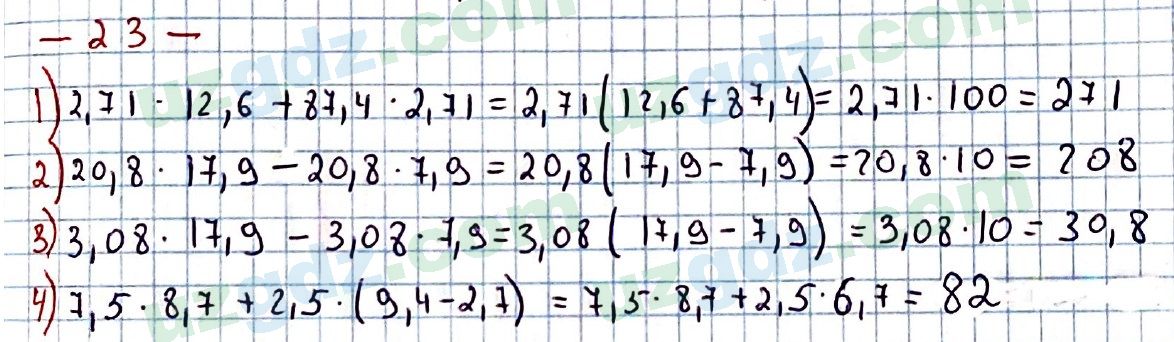 - 23 -
1) 2,71 · 12,6 + 87,4 · 2,71 = 2,71 (12,6 + 87,4) = 2,71 · 100 = 271
2) 20,8 · 17,9 - 20,8 · 7,9 = 20,8 (17,9 - 7,9) = 20,8 · 10 = 208
3) 3,08 · 17,9 - 3,08 · 7,9 = 3,08 (17,9 - 7,9) = 3,08 · 10 = 30,8
4) 7,5 · 8,7 + 2,5 · (9,4 - 2,7) = 7,5 · 8,7 + 2,5 · 6,7 = 82
uzgdz.com
uzgdz.com
uzgdz.com
uzgdz.com